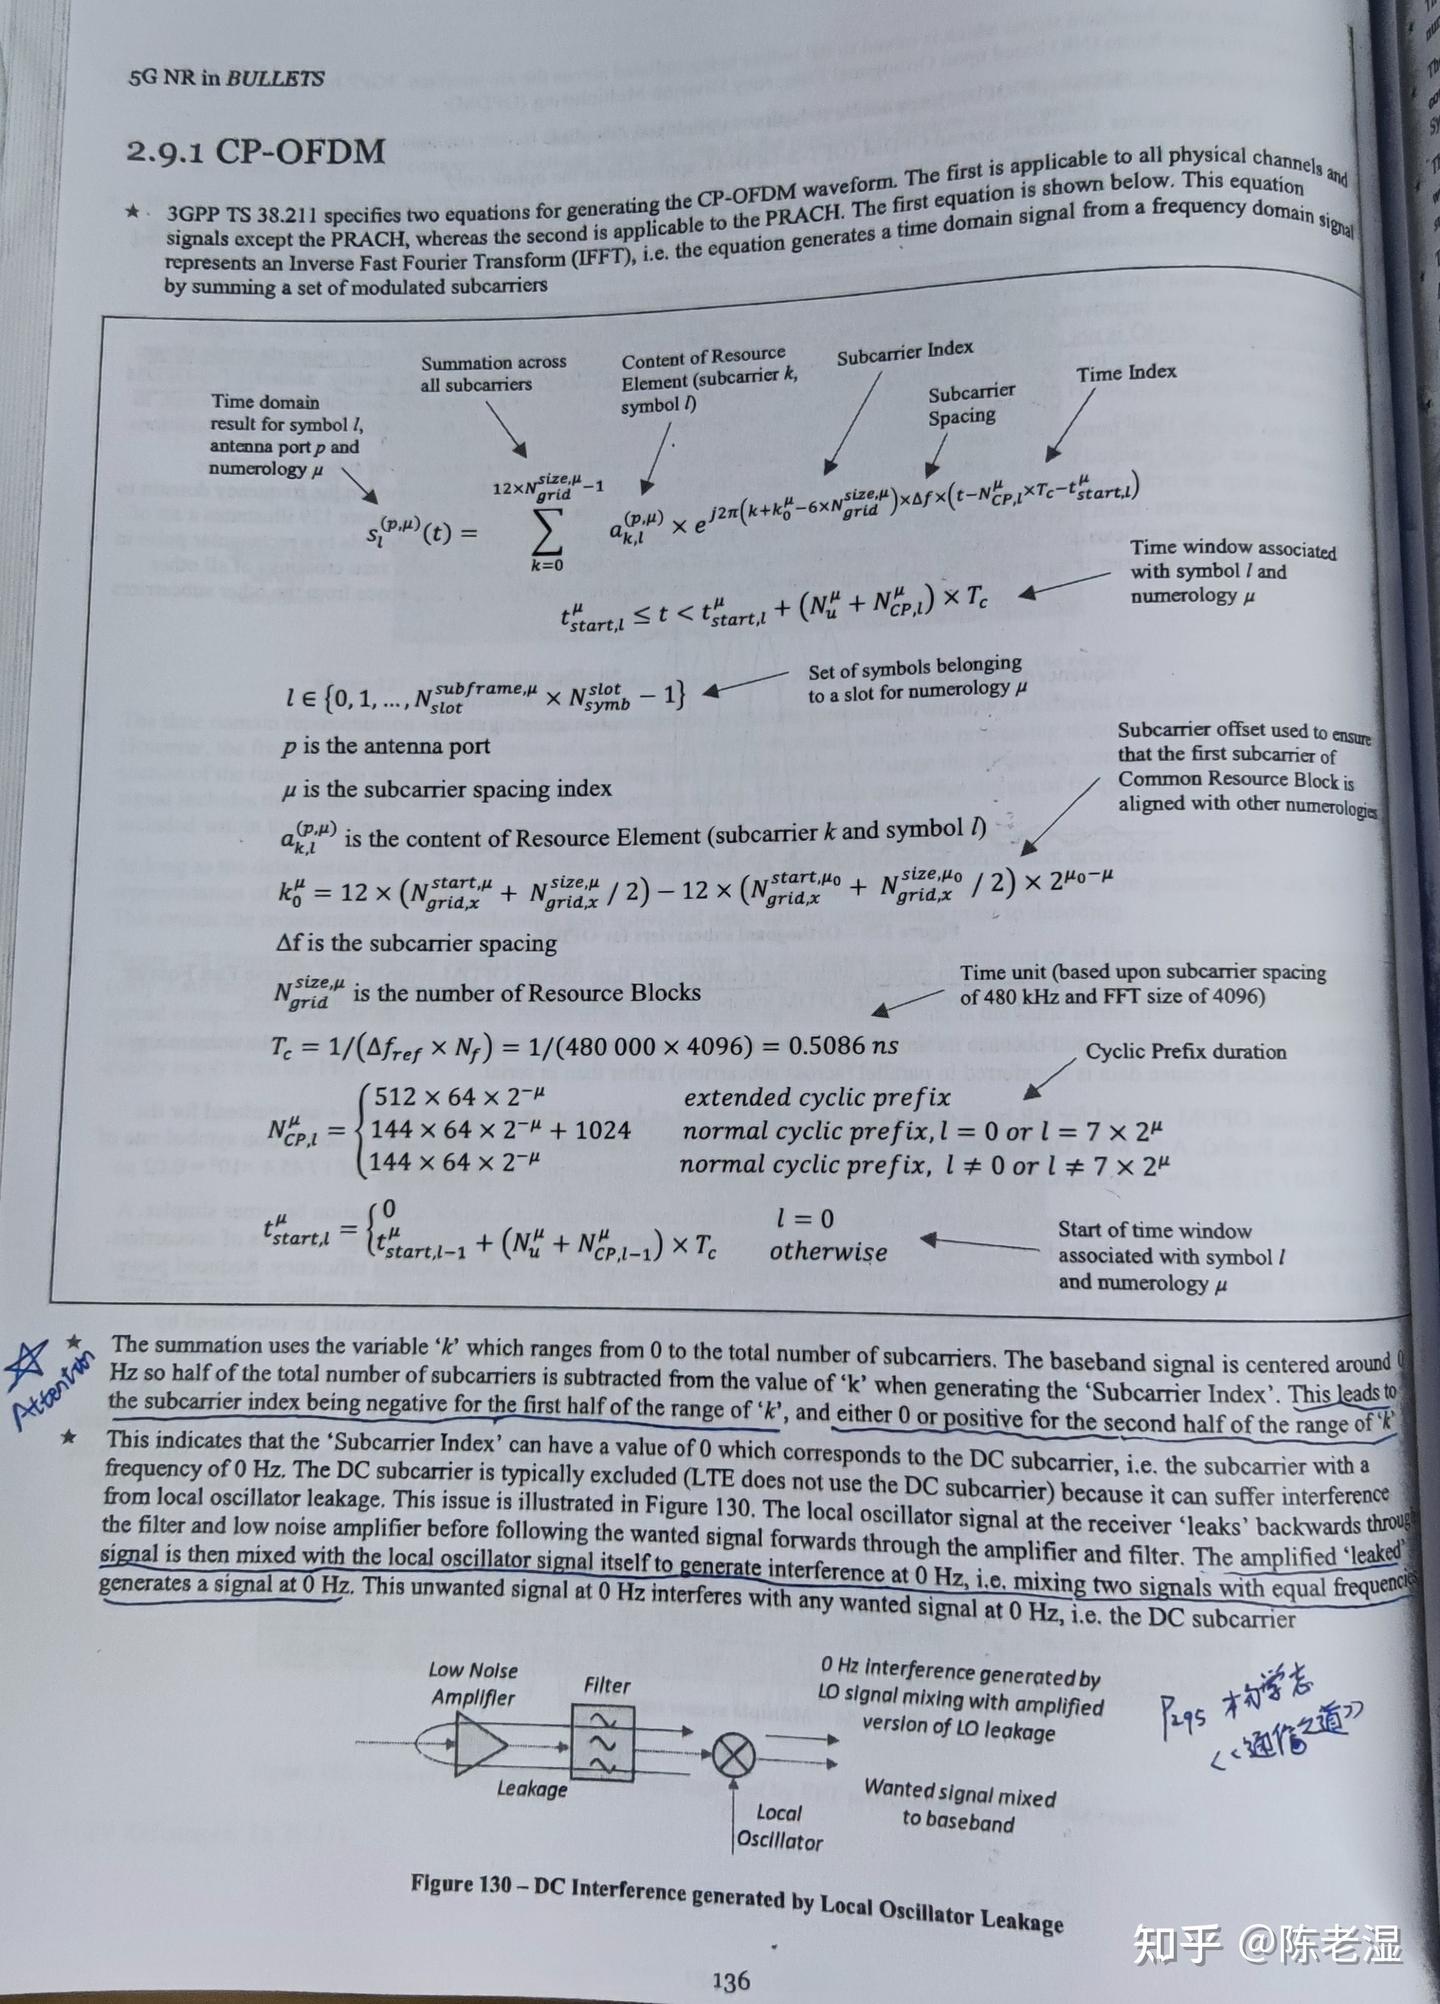 5G NR in BULLETS
2.9.1 CP-OFDM
★ 3GPP TS 38.211 specifies two equations for generating the CP-OFDM waveform. The first is applicable to all physical channels and
signals except the PRACH, whereas the second is applicable to the PRACH. The first equation is shown below. This equation
represents an Inverse Fast Fourier Transform (IFFT), i.e. the equation generates a time domain signal from a frequency domain signal
by summing a set of modulated subcarriers
Time domain
result for symbol l,
antenna port p and
numerology μ
Summation across
all subcarriers
Content of Resource
Element (subcarrier k,
symbol l)
Subcarrier Index
Subcarrier
Spacing
Time Index
s_l^{(p,μ)}(t) = \sum_{k=0}^{12×N_{grid}^{size,μ}−1} a_{k,l}^{(p,μ)} × e^{j2π(k+k_0^μ−6×N_{grid}^{size,μ})×Δf×(t−N_{CP,l}^μ×T_c−t_{start,l}^μ)}
t_{start,l}^μ ≤ t < t_{start,l}^μ + (N_u^μ + N_{CP,l}^μ) × T_c
Time window associated
with symbol l and
numerology μ
l ∈ {0, 1, ..., N_{slot}^{subframe,μ} × N_{symb}^{slot} − 1}
Set of symbols belonging
to a slot for numerology μ
p is the antenna port
μ is the subcarrier spacing index
Subcarrier offset used to ensure
that the first subcarrier of
Common Resource Block is
aligned with other numerologies
a_{k,l}^{(p,μ)} is the content of Resource Element (subcarrier k and symbol l)
k_0^μ = 12 × (N_{grid,x}^{start,μ} + N_{grid,x}^{size,μ} / 2) − 12 × (N_{grid,x}^{start,μ_0} + N_{grid,x}^{size,μ_0} / 2) × 2^{μ_0−μ}
Δf is the subcarrier spacing
N_{grid}^{size,μ} is the number of Resource Blocks
Time unit (based upon subcarrier spacing
of 480 kHz and FFT size of 4096)
T_c = 1/(Δf_{ref} × N_f) = 1/(480 000 × 4096) = 0.5086 ns
Cyclic Prefix duration
N_{CP,l}^μ = {
512 × 64 × 2^{−μ} extended cyclic prefix
144 × 64 × 2^{−μ} + 1024 normal cyclic prefix, l = 0 or l = 7 × 2^μ
144 × 64 × 2^{−μ} normal cyclic prefix, l ≠ 0 or l ≠ 7 × 2^μ
t_{start,l}^μ = {
0 l = 0
t_{start,l−1}^μ + (N_u^μ + N_{CP,l−1}^μ) × T_c otherwise
Start of time window
associated with symbol l
and numerology μ
☆ Attention
★ The summation uses the variable ‘k’ which ranges from 0 to the total number of subcarriers. The baseband signal is centered around 0
Hz so half of the total number of subcarriers is subtracted from the value of ‘k’ when generating the ‘Subcarrier Index’. This leads to
the subcarrier index being negative for the first half of the range of ‘k’, and either 0 or positive for the second half of the range of ‘k’
★ This indicates that the ‘Subcarrier Index’ can have a value of 0 which corresponds to the DC subcarrier, i.e. the subcarrier with a
frequency of 0 Hz. The DC subcarrier is typically excluded (LTE does not use the DC subcarrier) because it can suffer interference
from local oscillator leakage. This issue is illustrated in Figure 130. The local oscillator signal at the receiver ‘leaks’ backwards through
the filter and low noise amplifier before following the wanted signal forwards through the amplifier and filter. The amplified ‘leaked’
signal is then mixed with the local oscillator signal itself to generate interference at 0 Hz, i.e. mixing two signals with equal frequencies
generates a signal at 0 Hz. This unwanted signal at 0 Hz interferes with any wanted signal at 0 Hz, i.e. the DC subcarrier
Low Noise
Amplifier
Filter
Leakage
Local
Oscillator
0 Hz interference generated by
LO signal mixing with amplified
version of LO leakage
Wanted signal mixed
to baseband
P295 杨学志
<<通信之道>>
Figure 130 – DC Interference generated by Local Oscillator Leakage
136
知乎 @陈老湿